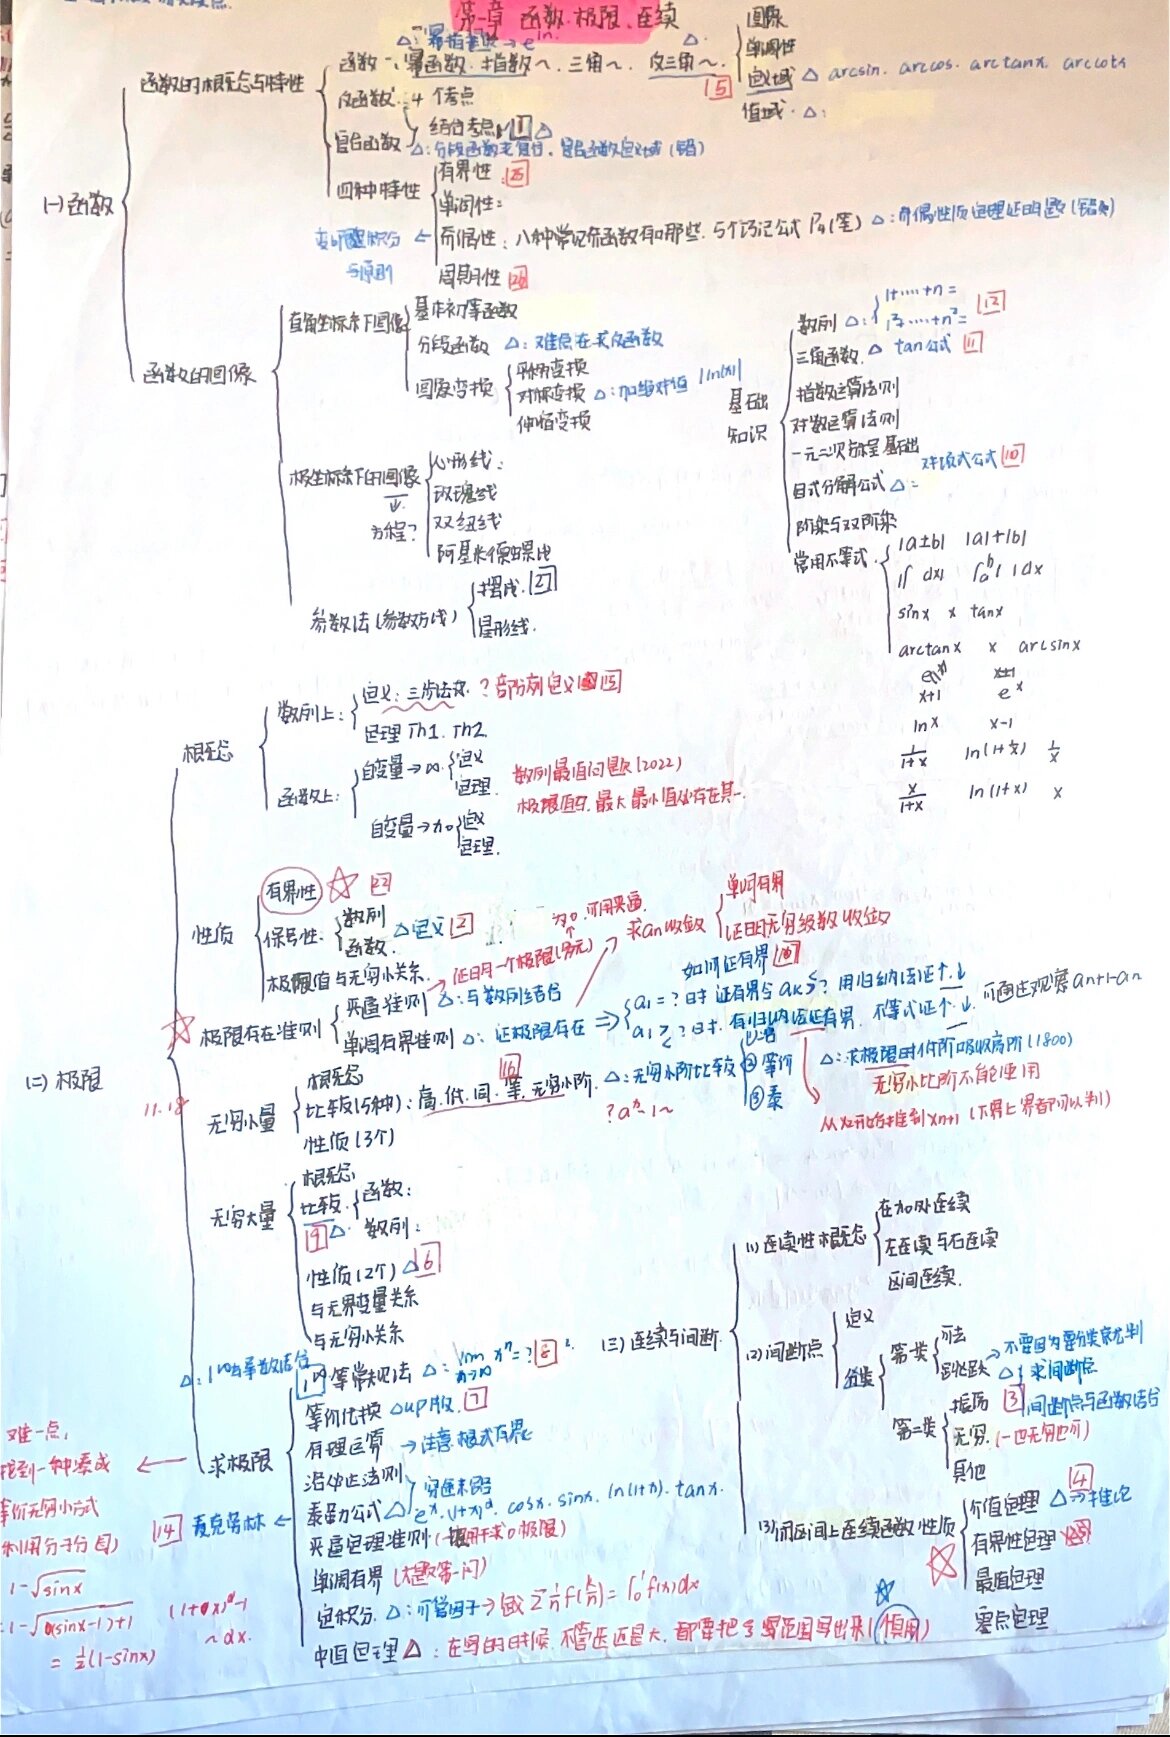 第一章 函数·极限·连续
△: 幂指函数 → e^ln
(一) 函数
函数的概念与特性
函数 一、幂函数、指数~、三角~、反三角~.
[5]
图像
单调性
定义域 △ arcsin. arccos. arctanx. arccotx
值域. △:
反函数: 4个考点
复合函数
结合考点 [1] △
△: 分段函数求复合, 复合函数定义域 (错)
四种特性
有界性 [25]
单调性:
奇偶性: 八种常见奇函数有哪些. 5个巧记公式 P4(笔) △: 奇偶性质定理证明题
变限积分
与原函
周期性 [26]
函数的图像
直角坐标系下图像
基本初等函数
分段函数 △: 难点在求反函数
图像变换
平移变换
对称变换 △: 加绝对值 |ln|x||
伸缩变换
极坐标系下的图像
↓
方程?
心形线:
玫瑰线
双纽线
阿基米德螺线
参数法 (参数方程)
摆线. [27]
星形线.
基础
知识
数列 △:
1+·····+n =
1²+·····+n² = [12]
三角函数. △ tan公式 [11]
指数运算法则
对数运算法则
一元二次方程基础
因式分解公式 △: [10]
阶乘与双阶乘
常用不等式.
|a±b| |a|+|b|
|∫ dx| ∫ₐᵇ | | dx
sinx x tanx
arctanx x arcsinx
x+1 eˣ
lnx x-1
1/(1+x) ln(1+1/x) 1/x
x/(1+x) ln(1+x) x
(二) 极限
概念
数列上:
定义: 三步法求. ? 部分列定义 [15]
定理 Th1. Th2.
函数上:
自变量→∞.
定义
定理.
自变量→x₀
定义
定理.
数列最值问题 (2022)
极限值与最大最小值必存在其一.
性质
有界性 ☆ [22]
保号性.
数列
函数.
△ 定义 [2]
极限值与无穷小关系.
☆ 极限存在准则
夹逼准则 △: 与数列结合
单调有界准则 △: 证极限存在 ⇒
证明一个极限(多元)
为0. 可用夹逼
求an收敛
单调有界
证明无穷级数收敛
如何证有界 [18]
a₁=?时 证有界令 aₖ≤? 用归纳法证↑.↓
a₁≥?时. 有归纳法证有界. 不等式证↑.↓. 可通过观察 an+1-an
无穷小量
11.18
概念
比较(5种): 高. 低. 同. 等. 无穷小阶. △: 无穷小阶比较 [16]
② 等价
③ 泰
? aˣ-1~
性质(3个)
△: 求极限时低阶吸收高阶 (1800)
无穷小比阶不能使用
从x₂开始推到xn+1 (下界上界都可以判)
无穷大量
概念
比较.
函数:
数列:
[19] △
性质(2个) △ [6]
与无界变量关系
与无穷小关系
求极限
等常规法 △: lim xⁿ=? [8]
n→∞
等价代换 △up版. [7]
有理运算 → 注意 根式有界
洛必达法则
泰勒公式 △ eˣ. (1+x)ᵅ. cosx. sinx. ln(1+x). tanx.
[14] 麦克劳林 ←
夹逼定理准则 (一般用于求0极限)
单调有界 (大题第一问)
定积分. △: 可爱因子→做 Σ 1/n f(k/n) = ∫₀¹ f(x)dx
中值定理 △: 在写的时候. 不管还是大. 都要把了写范围写出来 (慎用)
难一点,
找到一种凑成
等价无穷小方式
利用分子分母)
1-√sinx
=1-√(sinx-1)+1
= ½(1-sinx)
(1+αx)^α-1
~αx.
(三) 连续与间断.
(1) 连续性概念
在x₀处连续
左连续与右连续
区间连续.
(2) 间断点
定义
分类
第一类
可去
跳跃
→ 不要因为要分类就先判
△: 求间断点
第二类
振荡 [3] 间断点与函数结合
无穷. (一边无穷也可)
其他
(3) 闭区间上连续函数性质
介值定理 [4] △ → 推论
有界性定理
☆
最值定理
零点定理